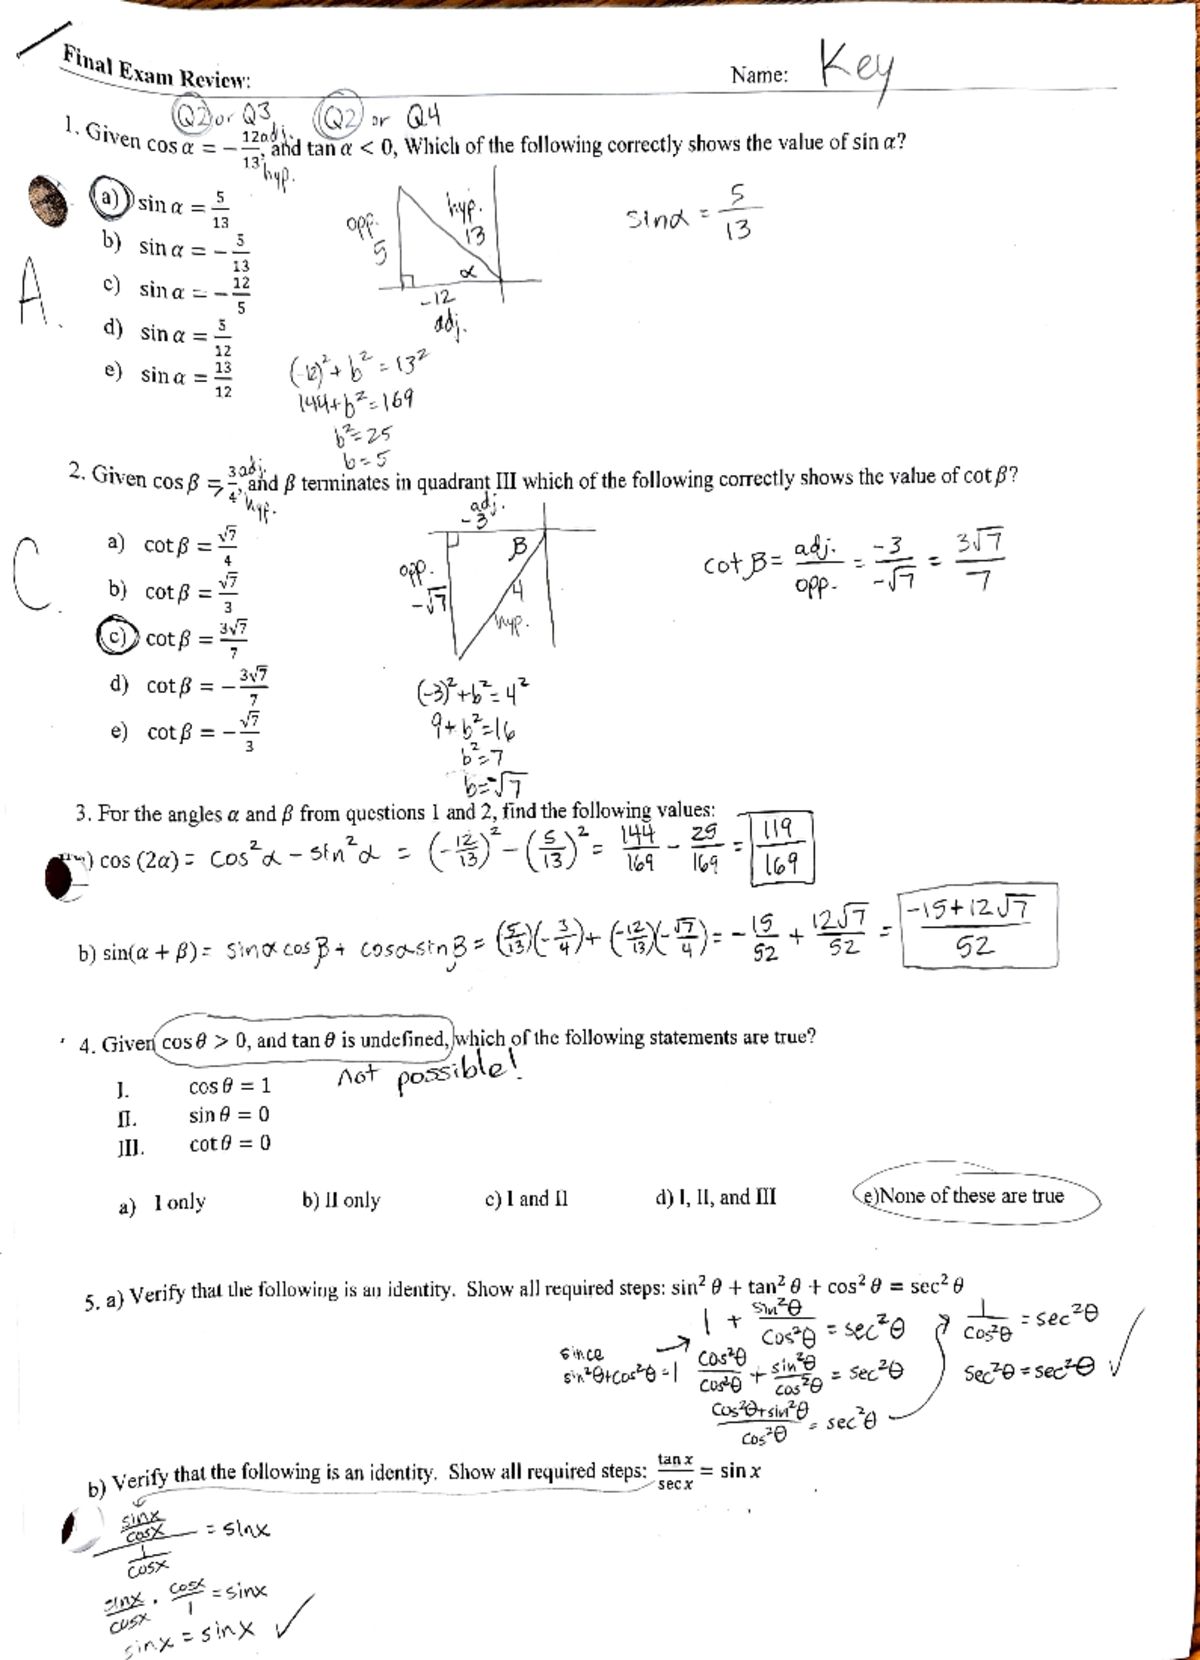 Final Exam Review:
Name: Key
Q2 or Q3 Q2 or Q4
1. Given cos α = −12/13, and tan α < 0, Which of the following correctly shows the value of sin α?
adj.
hyp.
a) sin α = 5/13
b) sin α = −5/13
c) sin α = −12/5
d) sin α = 5/12
e) sin α = 13/12
A.
opp. 5
hyp. 13
α
-12
adj.
sinα = 5/13
(-12)² + b² = 13²
144+b²=169
b²=25
b=5
2. Given cos β = −3/4, and β terminates in quadrant III which of the following correctly shows the value of cot β?
adj.
hyp.
a) cot β = √7/4
b) cot β = √7/3
c) cot β = 3√7/7
d) cot β = −3√7/7
e) cot β = −√7/3
C.
adj.
-3
B
opp.
-√7
4
hyp.
cot β = adj./opp. = -3/-√7 = 3√7/7
(-3)²+b²=4²
9+b²=16
b²=7
b=-√7
3. For the angles α and β from questions 1 and 2, find the following values:
) cos (2α) = cos²α − sin²α = (-12/13)² − (5/13)² = 144/169 − 25/169 = 119/169
b) sin(α + β) = sinα cosβ + cosα sinβ = (5/13)(-3/4) + (-12/13)(-√7/4) = -15/52 + 12√7/52 = -15+12√7/52
4. Given cos θ > 0, and tan θ is undefined, which of the following statements are true?
not possible!
I. cos θ = 1
II. sin θ = 0
III. cot θ = 0
a) I only b) II only c) I and II d) I, II, and III e)None of these are true
5. a) Verify that the following is an identity. Show all required steps: sin² θ + tan² θ + cos² θ = sec² θ
since
sin²θ+cos²θ=1
1 + sin²θ/cos²θ = sec²θ
cos²θ/cos²θ + sin²θ/cos²θ = sec²θ
cos²θ+sin²θ/cos²θ = sec²θ
1/cos²θ = sec²θ
sec²θ = sec²θ ✓
b) Verify that the following is an identity. Show all required steps: tan x/sec x = sin x
sinx/cosx / 1/cosx = sinx
sinx/cosx · cosx/1 = sinx
sinx = sinx ✓